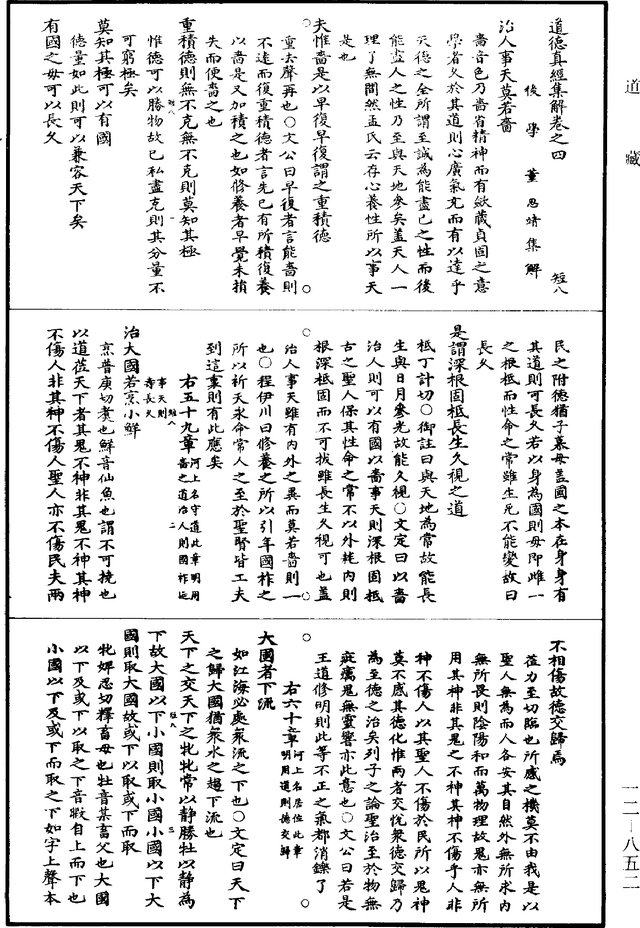 道藏
道德真經集解卷之四　短八
後學董思靖集解
治人事天莫若嗇
嗇音色乃嗇省精神而有斂藏貞固之意
學者久於其道則心廣氣充而有以達乎
天德之全所謂至誠為能盡己之性而後
能盡人之性乃至與天地參矣蓋天人一
理了無間然孟氏云存心養性所以事天
是也
夫惟嗇是以早復早復謂之重積德
重去聲再也○文公曰早復者言能嗇則
不遠而復重積德者言先已有所積復養
以嗇是又加積之也如修養者早覺未損
失而便嗇之也
重積德則無不克無不克則莫知其極
惟德可以勝物故已私盡克則其分量不
可窮極矣
莫知其極可以有國
德量如此則可以兼容天下矣
有國之母可以長久
民之附德猶子慕母蓋國之本在身身有
其道則可長久若以身為國則母即雌一
之根柢而性命之常雖生死不能變故曰
長久
是謂深根固柢長生久視之道
柢丁計切○御註曰與天地為常故能長
生與日月參光故能久視○文定曰以嗇
治人則可以有國以嗇事天則深根固柢
古之聖人保其性命之常不以外耗內則
根深柢固而不可拔雖長生久視可也蓋
治人事天雖有內外之異而莫若嗇則一
也○程伊川曰修養之所以引年國祚之
所以祈天永命常人之至於聖賢皆工夫
到這裏則有此應矣
右五十九章河上名守道此章明用嗇之道治人則國祚延事天則壽長久
短八　二
治大國若烹小鮮
烹普庚切煑也鮮音仙魚也謂不可撓也
以道莅天下者其鬼不神非其鬼不神其神
不傷人非其神不傷人聖人亦不傷民夫兩
不相傷故德交歸焉
莅力至切臨也所感之機莫不由我是以
聖人無為而人各安其自然外無所求內
無所畏則陰陽和而萬物理故鬼亦無所
用其神非其鬼之不神其神不傷乎人非
神不傷人以其聖人不傷於民所以鬼神
莫不感其德化惟兩者交悅衆德交歸乃
為至德之治矣列子之論聖治至於物無
疵癘鬼無靈響亦此意也○文公曰若是
王道修明則此等不正之氣都消鑠了
右六十章河上名居位此章明用道則德交歸
大國者下流
如江海必處衆流之下也○文定曰天下
之歸大國猶衆水之趨下流也
天下之交天下之牝牝常以靜勝牡以靜為
短八　三
下故大國以下小國則取小國小國以下大
國則取大國故或下以取或下而取
牝婢忍切釋畜母也牡音某畜父也大國
以下及或下以取之下音鞍自上而下也
小國以下及或下而取之下如字上聲本
一二—八五二